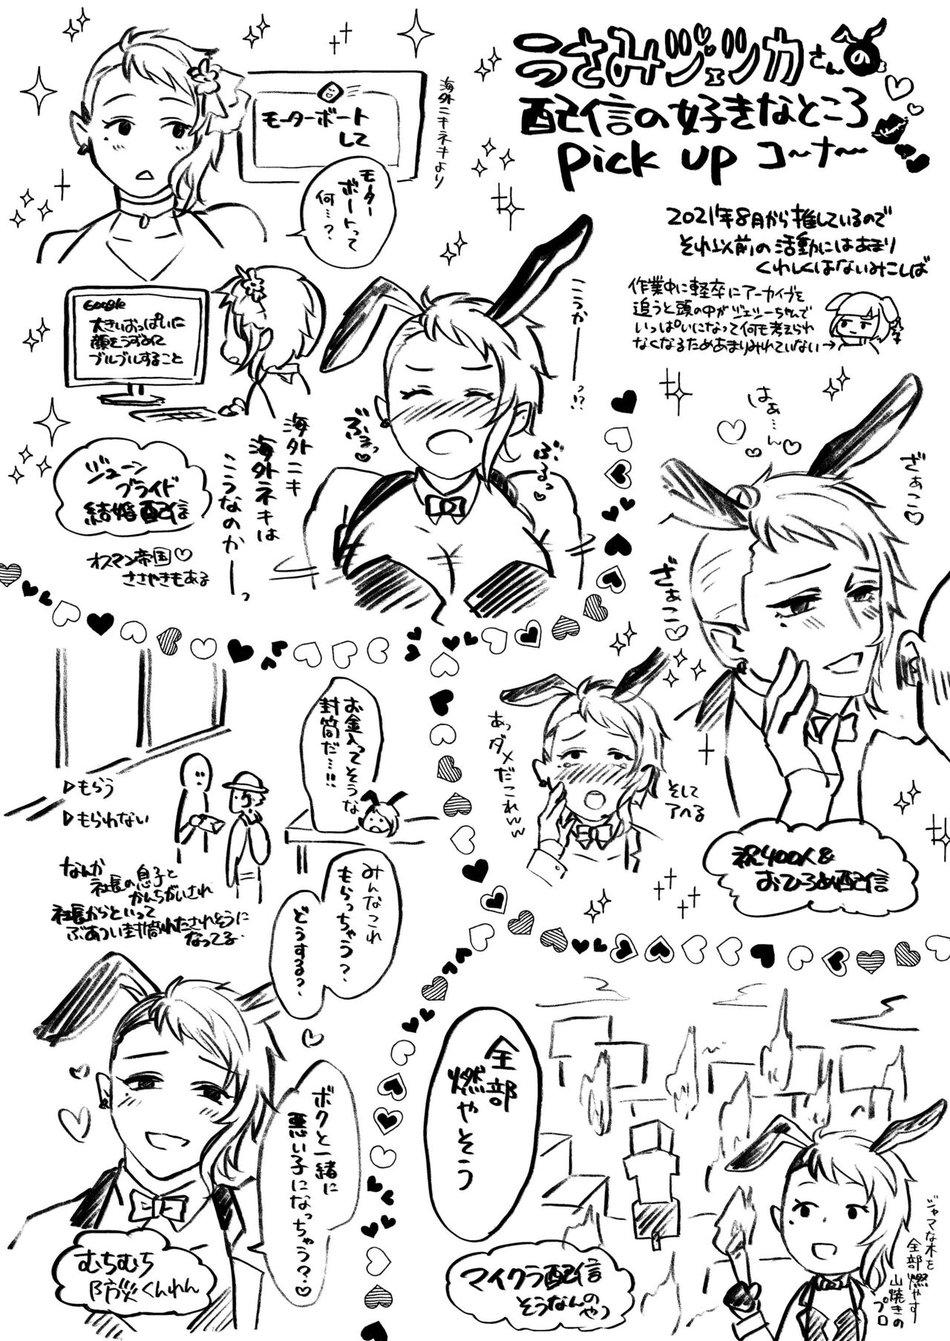 うさみジェツカさんの
配信の好きなところ
Pick up コ〜ナ〜
2021年8月から推しているので
それ以前の活動にはあまり
くわしくはないみこしば
作業中に軽卒にアーカイブを
追うと頭の中がジェリーちゃんで
いっぱいになって何も考えられ
なくなるためあまりみれていない→
海外ニキネキより
モーターボート
して
モーター
ボートって
何…?
Google
大きいおっぱいに
顔をうずめて
ブルブルすること
こうか──っ!?
ぶるっ
海外ニキ
海外ネキは
こうなのか──っ
ジューン
ブライド
結婚配信
オスマン帝国♡
ささやきもある
はぁ…ん♡
ざぁこ♡
ざぁこ♡
あっダメだこれww
そして
アヘる
祝400人&
おひろめ配信
お金入ってそうな
封筒だ…!!
▷もらう
▷もらわない
なんか
社長の息子と
かんちがいされ
社長からといって
ぶあつい封筒わたされそうに
なってる
みんなこれ
もらっちゃう?
どうする?
ボクと一緒に
悪い子になっちゃう?♡
むちむち
防災くんれん
全部
燃やそう
マイクラ配信
そうなんのやつ
ジャマな木を
全部燃やす
山焼きの
プロ